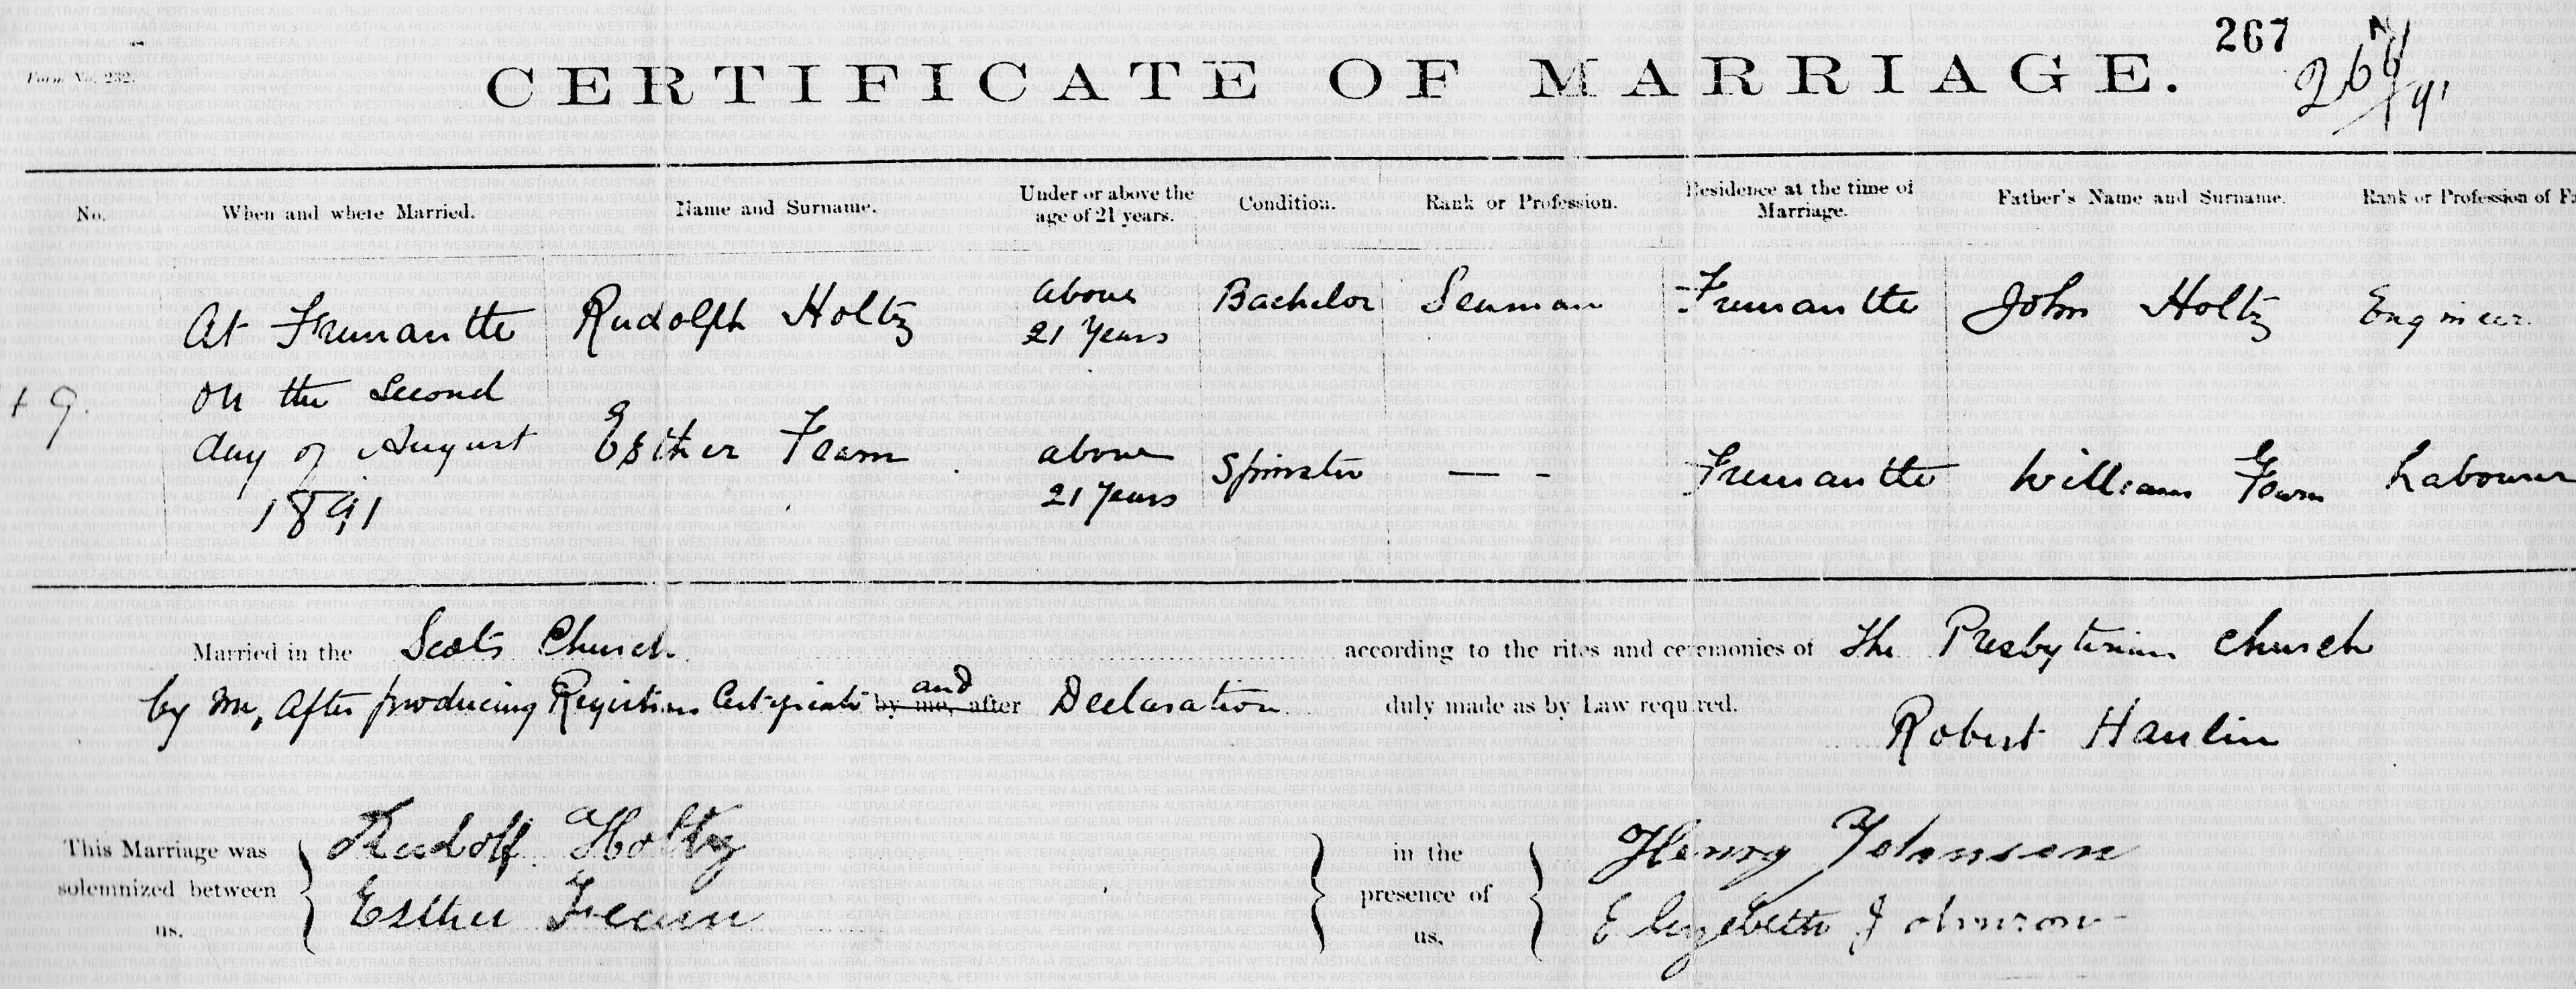 267
Form No. 232.
CERTIFICATE OF MARRIAGE.
No. When and where Married. Name and Surname. Under or above the age of 21 years. Condition. Rank or Profession. Residence at the time of Marriage. Father's Name and Surname. Rank or Profession of Fa
At Fremantle Rudolph Holtz above 21 Years Bachelor Seaman Fremantle John Holtz Engineer
on the Second
9. day of August Esther Fearn above 21 Years Spinster — - Fremantle William Fearn Labourer
1891
Married in the Scots Church according to the rites and ceremonies of The Presbyterian Church
by me, After producing Registrars Certificate by me, and after Declaration duly made as by Law required.
Robert Hanlin
This Marriage was solemnized between us. Rudolf Holtz in the presence of us. Henry Johnson
Esther Fearn Elizebeth Johnson